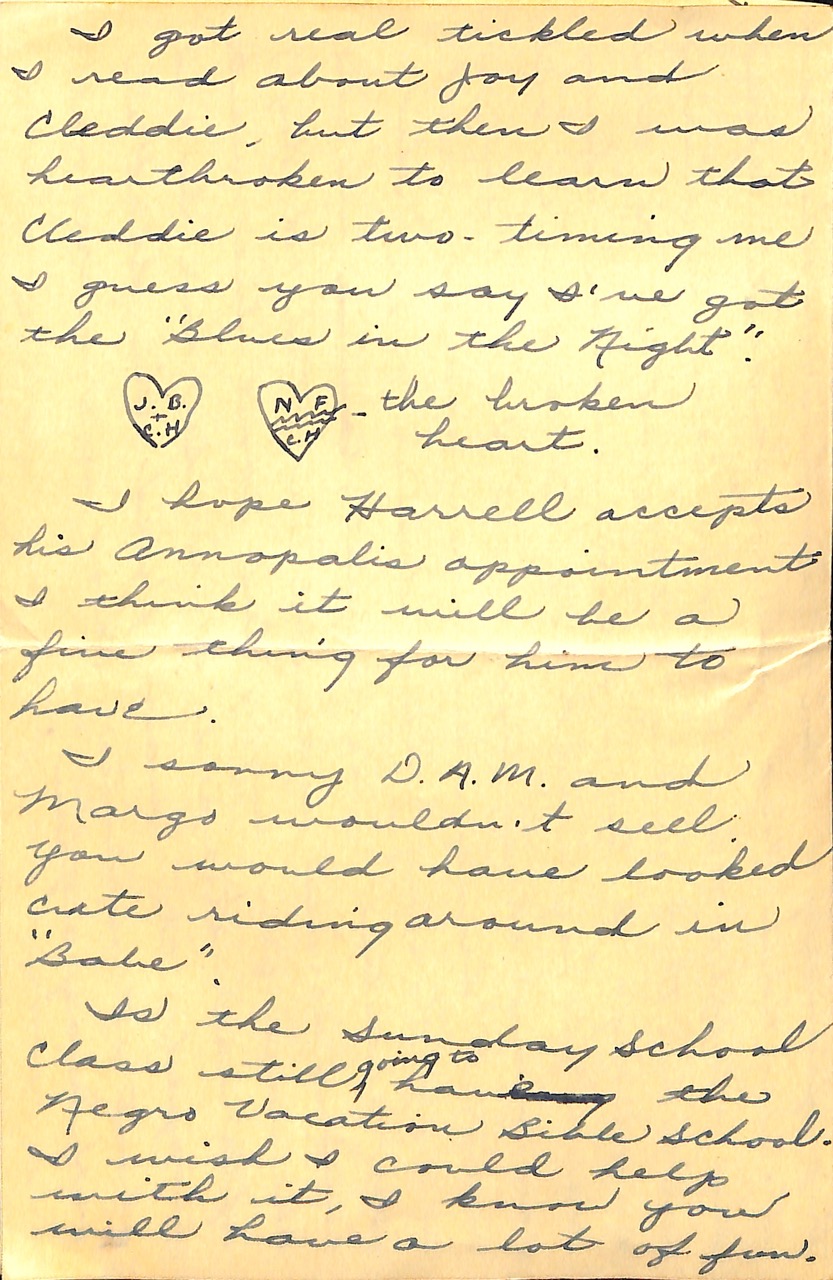 I got real tickled when
I read about Joy and
Cleddie, but then I was
heartbroken to learn that
Cleddie is two-timing me
I guess you say I've got
the "Blues in the Night".
J. B.
+
C. H
N F
C. H
- the broken
heart.
I hope Harrell accepts
his Annopalis appointment
I think it will be a
fine thing for him to
have.
I sorry D. A. M. and
Margo wouldn't sell.
You would have looked
cute riding around in
"Babe".
Is the Sunday School
Class still going to have the
Negro Vacation Bible School.
I wish I could help
with it, I know you
will have a lot of fun.